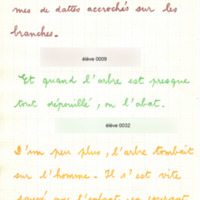 mes de dattes accrochés sur les
branches.
élève 0009
Et quand l'arbre est presque
tout dépouillé, on l'abat.
élève 0032
D'un peu plus, l'arbre tombait
sur l'homme. Il s'est vite
sauvé